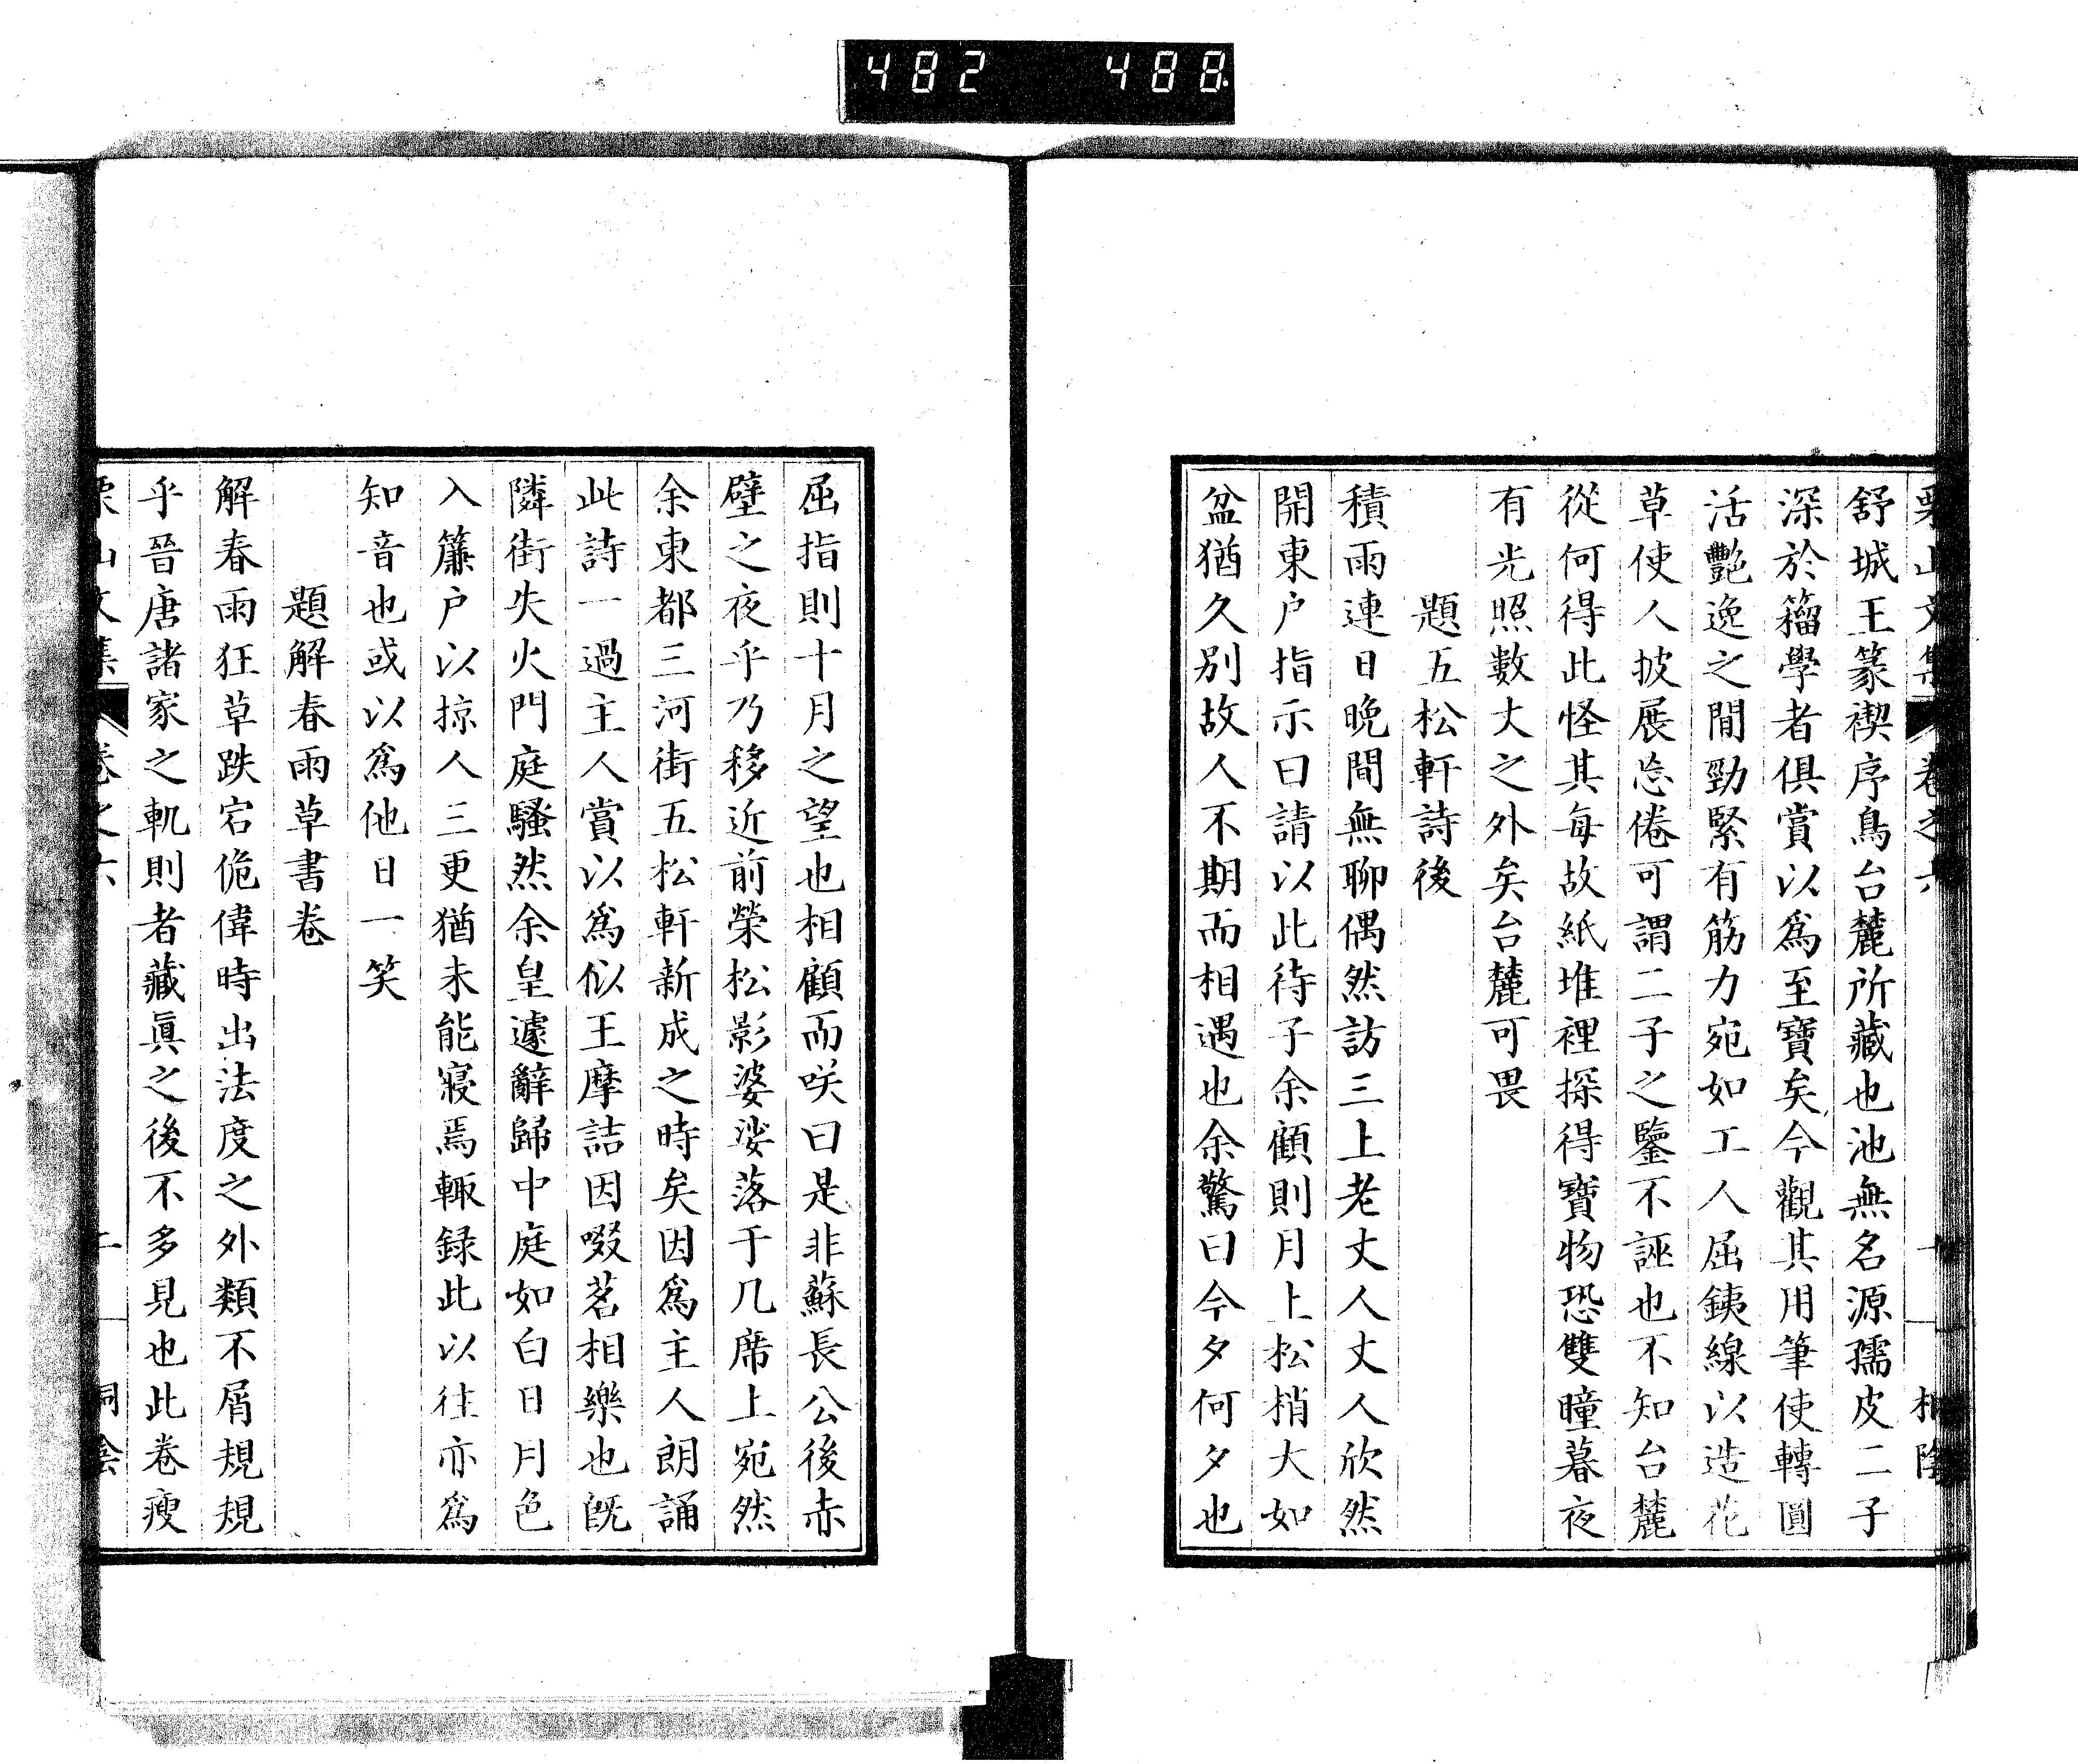 482 488
舒城王篆禊序鳥台麓所藏也池無名源孺皮二子
深於籀學者俱賞以爲至寶矣今觀其用筆使轉圓
活艷逸之間勁緊有筋力宛如工人屈銕線以造花
草使人披展忘倦可謂二子之鑒不誣也不知台麓
從何得此怪其每故紙堆裡探得寶物恐雙瞳暮夜
有光照數丈之外矣台麓可畏
題五松軒詩後
積雨連日晚間無聊偶然訪三上老丈人丈人欣然
開東户指示曰請以此待子余顧則月上松梢大如
盆猶久别故人不期而相遇也余驚曰今夕何夕也
屈指則十月之望也相顧而咲曰是非蘇長公後赤
壁之夜乎乃移近前榮松影婆娑落于几席上宛然
余東都三河街五松軒新成之時矣因爲主人朗誦
此詩一過主人賞以爲似王摩詰因啜茗相樂也既
隣街失火門庭騷然余皇遽辭歸中庭如白日月色
入簾户以掠人三更猶未能寢焉輙録此以往亦爲
知音也或以爲他日一笑
題解春雨草書卷
解春雨狂草跌宕佹偉時出法度之外類不屑規規
乎晉唐諸家之軌則者藏眞之後不多見也此卷瘦